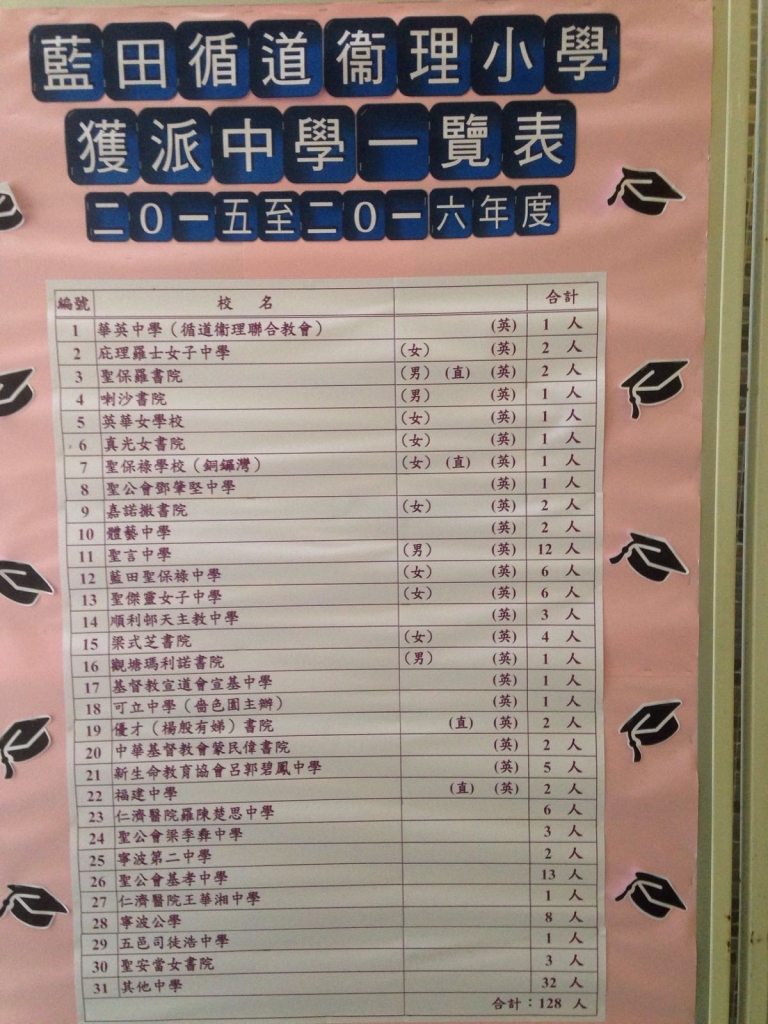 藍田循道衞理小學
獲派中學一覽表
二0一五至二0一六年度
編號 校 名 合計
1 華英中學（循道衞理聯合教會） (英) 1 人
2 庇理羅士女子中學 (女) (英) 2 人
3 聖保羅書院 (男) (直) (英) 2 人
4 喇沙書院 (男) (英) 1 人
5 英華女學校 (女) (英) 1 人
6 真光女書院 (女) (英) 1 人
7 聖保祿學校（銅鑼灣） (女) (直) (英) 1 人
8 聖公會鄧肇堅中學 (英) 1 人
9 嘉諾撒書院 (女) (英) 2 人
10 體藝中學 (英) 2 人
11 聖言中學 (男) (英) 12 人
12 藍田聖保祿中學 (女) (英) 6 人
13 聖傑靈女子中學 (女) (英) 6 人
14 順利邨天主教中學 (英) 3 人
15 梁式芝書院 (女) (英) 4 人
16 觀塘瑪利諾書院 (男) (英) 1 人
17 基督教宣道會宣基中學 (英) 1 人
18 可立中學（嗇色園主辦） (英) 1 人
19 優才（楊殷有娣）書院 (直) (英) 2 人
20 中華基督教會蒙民偉書院 (英) 2 人
21 新生命教育協會呂郭碧鳳中學 (英) 5 人
22 福建中學 (直) (英) 2 人
23 仁濟醫院羅陳楚思中學 6 人
24 聖公會梁季彝中學 3 人
25 寧波第二中學 2 人
26 聖公會基孝中學 13 人
27 仁濟醫院王華湘中學 1 人
28 寧波公學 8 人
29 五邑司徒浩中學 1 人
30 聖安當女書院 3 人
31 其他中學 32 人
合計：128 人